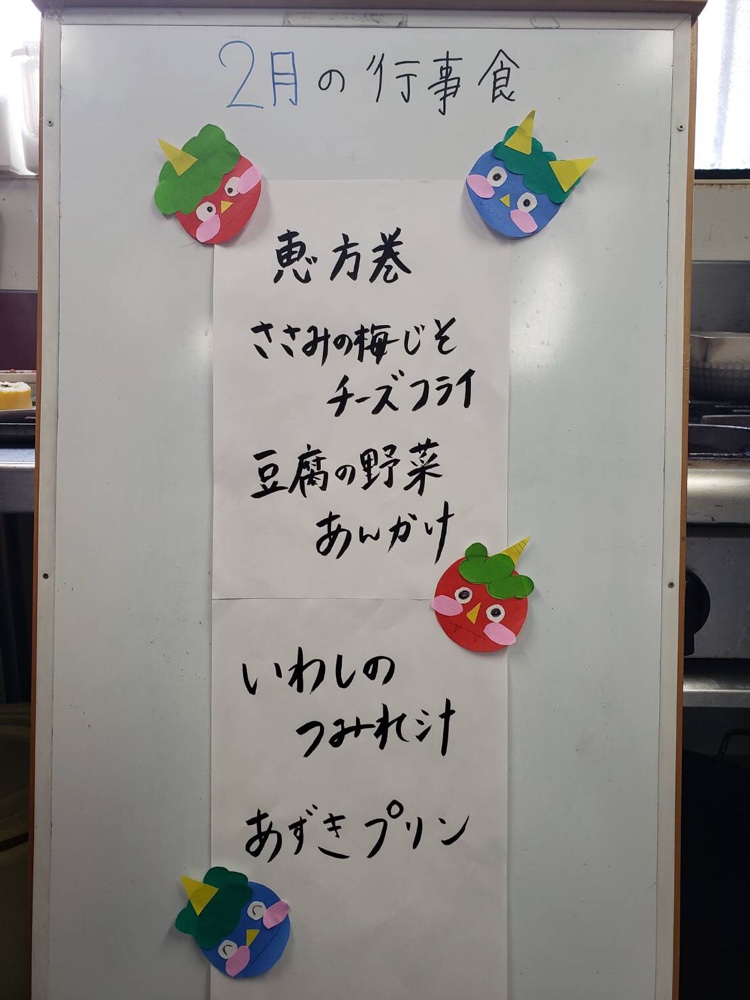 2月の行事食
恵方巻
ささみの梅じそ
チーズフライ
豆腐の野菜
あんかけ
いわしの
つみれ汁
あずきプリン